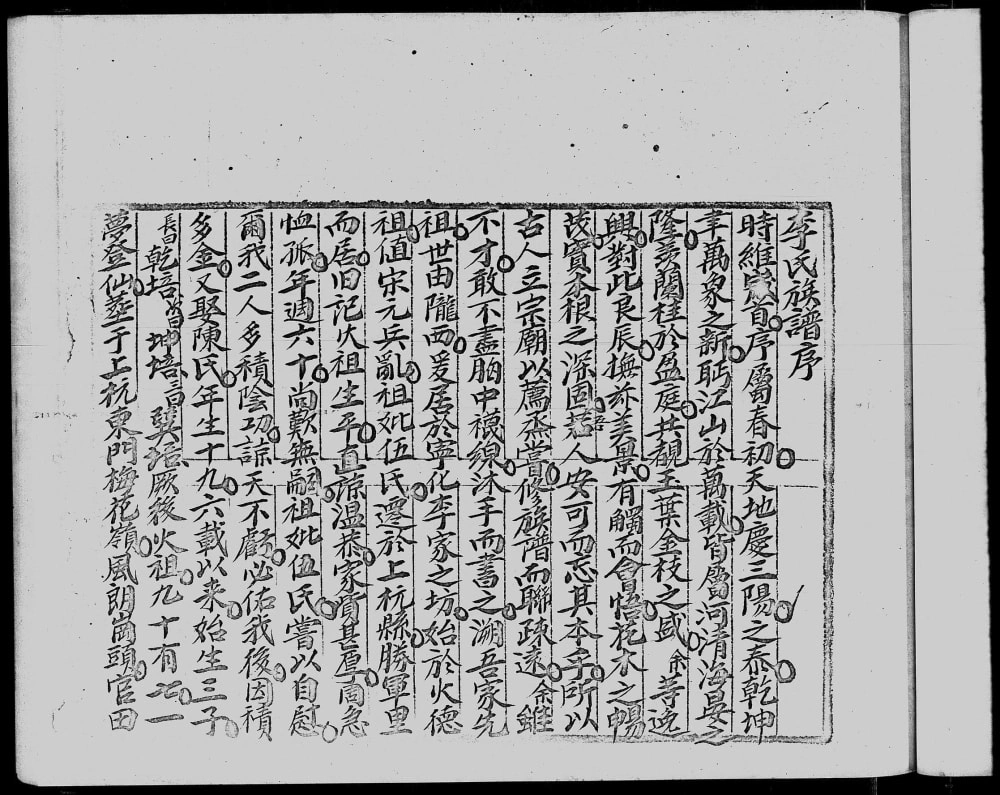 李氏族譜序
時維歲首序屬春初天地慶三陽之泰乾坤
聿萬象之新眄江山於萬載皆屬河清海晏之
隆羨蘭桂於盈庭共覩玉葉金枝之盛余等逸
興對此良辰撫茲美景有觸而會悟花木之暢
茂實本根之深固吾人安可而忘其本乎所以
古人立宗廟以薦烝嘗修族譜而聯疎遠余雖
不才敢不盡胸中襪線沐手而書之溯吾家先
祖世由隴西爰居於寧化李家之坊始於火德
祖值宋元兵亂祖妣伍氏遷於上杭縣勝軍里
而居旧記火祖生平直諒温恭家貲甚厚周急
恤孤年週六十尚歎無嗣祖妣伍氏嘗以自慰
爾我二人多積陰功諒天不虧必佑我後因積
多金又娶陳氏年生十九六載以来始生三子
長曰乾培次曰坤培三曰巽培厥後火祖九十有一
夢登仙塟于上杭東門梅花嶺風朗崗頭官田